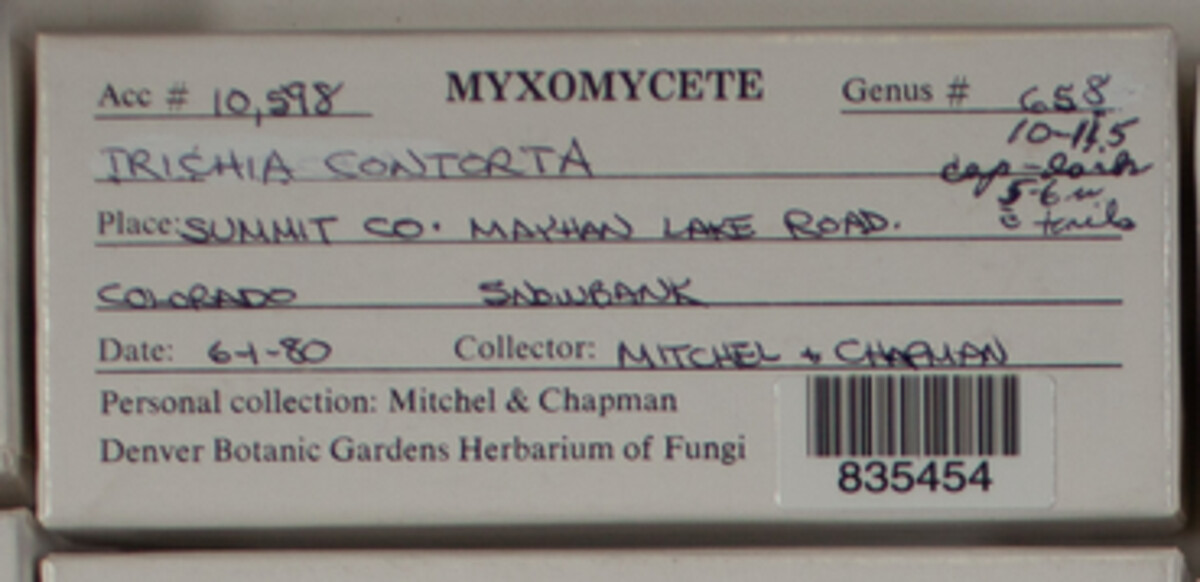 Acc # 10,598 MYXOMYCETE Genus # 658
10-11.5
TRICHIA CONTORTA cap-dark
5-6 u
Place: SUMMIT CO. MAYHAN LAKE ROAD. c̄ tails
COLORADO SNOWBANK
Date: 6-1-80 Collector: MITCHEL + CHAPMAN
Personal collection: Mitchel & Chapman
Denver Botanic Gardens Herbarium of Fungi
835454